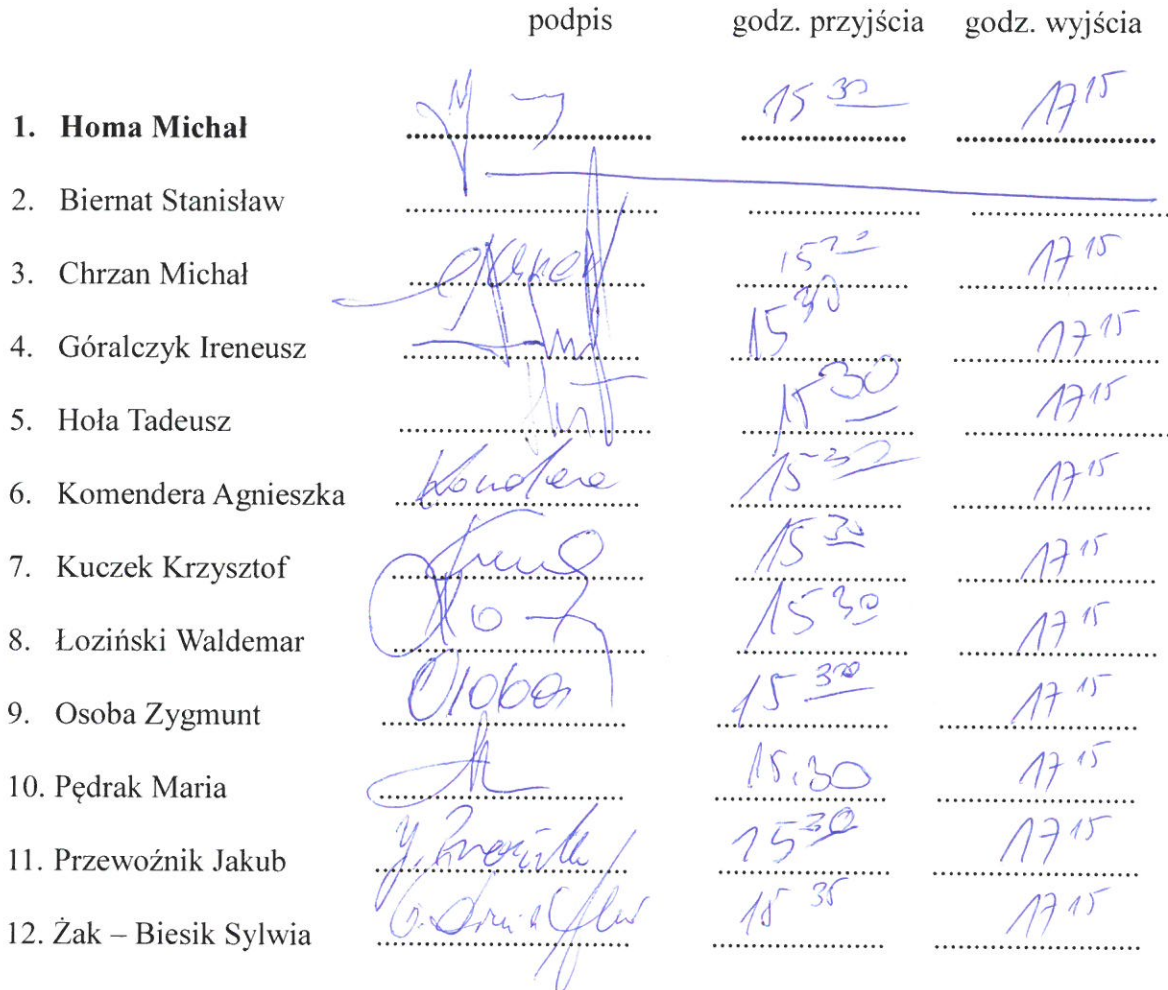 podpis godz. przyjścia godz. wyjścia
1. Homa Michał 15 30 17 15
2. Biernat Stanisław
3. Chrzan Michał 17 15
4. Góralczyk Ireneusz 15 30 17 15
5. Hoła Tadeusz 15 30 17 15
6. Komendera Agnieszka 17 15
7. Kuczek Krzysztof 15 30 17 15
8. Łoziński Waldemar 15 30 17 15
9. Osoba Zygmunt Osoba 15 30 17 15
10. Pędrak Maria 15.30 17 15
11. Przewoźnik Jakub 15 30 17 15
12. Żak – Biesik Sylwia 15 35 17 15